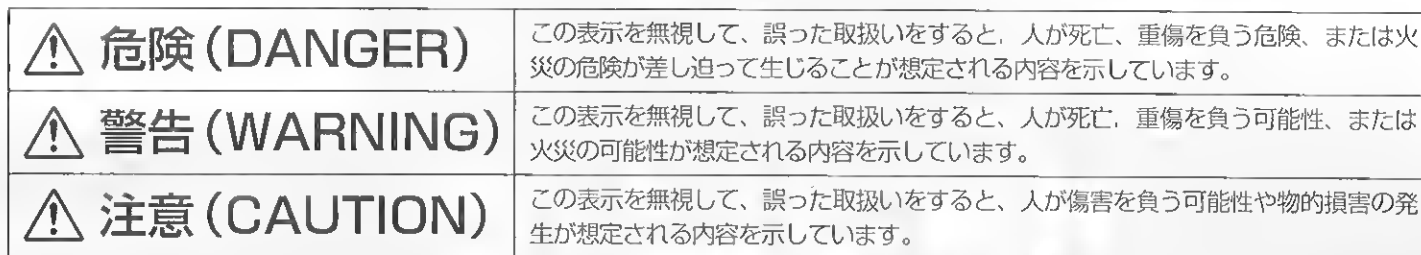 ⚠ 危険(DANGER)
この表示を無視して、誤った取扱いをすると、人が死亡、重傷を負う危険、または火
災の危険が差し迫って生じることが想定される内容を示しています。
⚠ 警告(WARNING)
この表示を無視して、誤った取扱いをすると、人が死亡、重傷を負う可能性、または
火災の可能性が想定される内容を示しています。
⚠ 注意(CAUTION)
この表示を無視して、誤った取扱いをすると、人が傷害を負う可能性や物的損害の発
生が想定される内容を示しています。